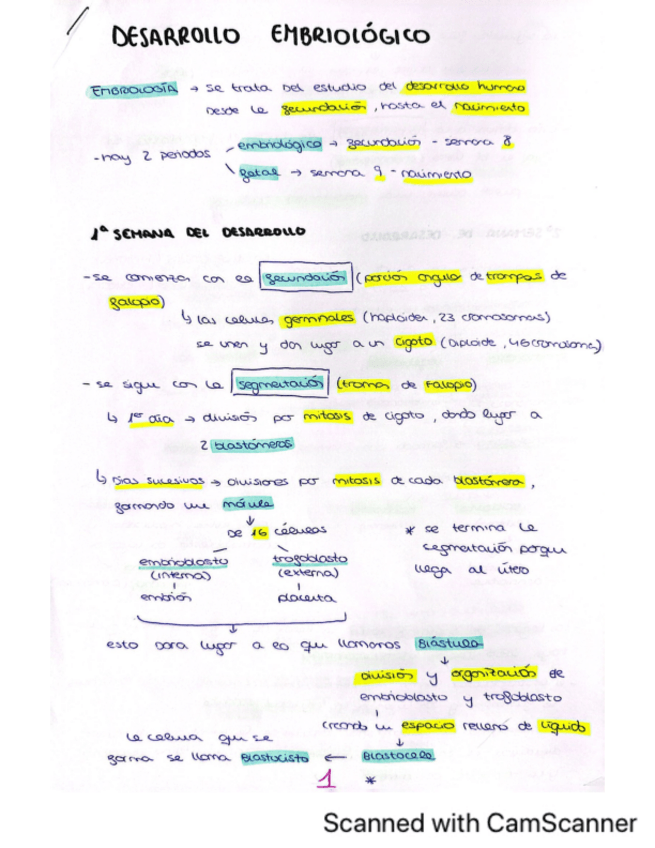 DESARROLLO EMBRIOLÓGICO
EMBRIOLOGÍA → se trata del estudio del desarrollo humano
desde la fecundación, hasta el nacimiento
- hay 2 periodos
embriológico → fecundación - semana 8
fetal → semana 9 - nacimiento
1ª SEMANA DEL DESARROLLO
- se comienza con la fecundación (porción angular de trompas de
falopio)
↳ las células germinales (haploides, 23 cromosomas)
se unen y dan lugar a un cigoto (diploide, 46 cromosomas)
- se sigue con la segmentación (trompas de Falopio)
↳ 1er día → división por mitosis de cigoto, dando lugar a
2 blastómeros
↳ Días sucesivos → divisiones por mitosis de cada blastómera,
formando una mórula
↓
de 16 células
* se termina la
segmentación porque
llega al útero
embrioblasto trofoblasto
(interna) (externa)
embrión placenta
↓
esto dará lugar a lo que llamamos Blástula
↓
división y organización de
embrioblasto y trofoblasto
creando un espacio relleno de líquido
↓
Blastocele
la célula que se
forma se llama Blastocisto ←
1 *
Scanned with CamScanner